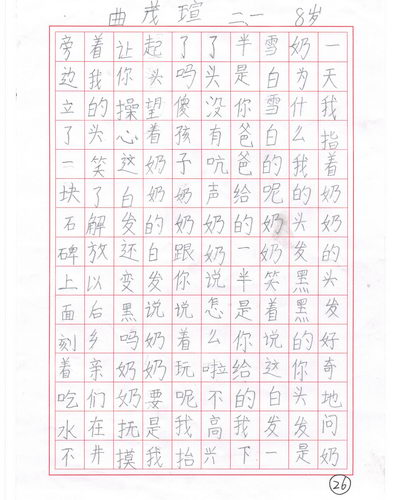 曲茂瑄 二一 8岁
一天我指着奶奶的头发好奇地问奶
奶为什么我的头发黑黑的你头发是
雪白雪白的呢奶奶笑着说这白发一
半是你爸爸给的一半是你给的我下
了头没有吭声奶奶说怎么啦不高兴
了吗傻孩子奶奶跟你说着玩呢我抬
起头望着奶奶的白发说奶奶要是我
让你操心这白发还变黑吗奶奶抚摸
着我的头笑了解放以后乡亲们在井
旁边立了一块石碑上面刻着吃水不
26